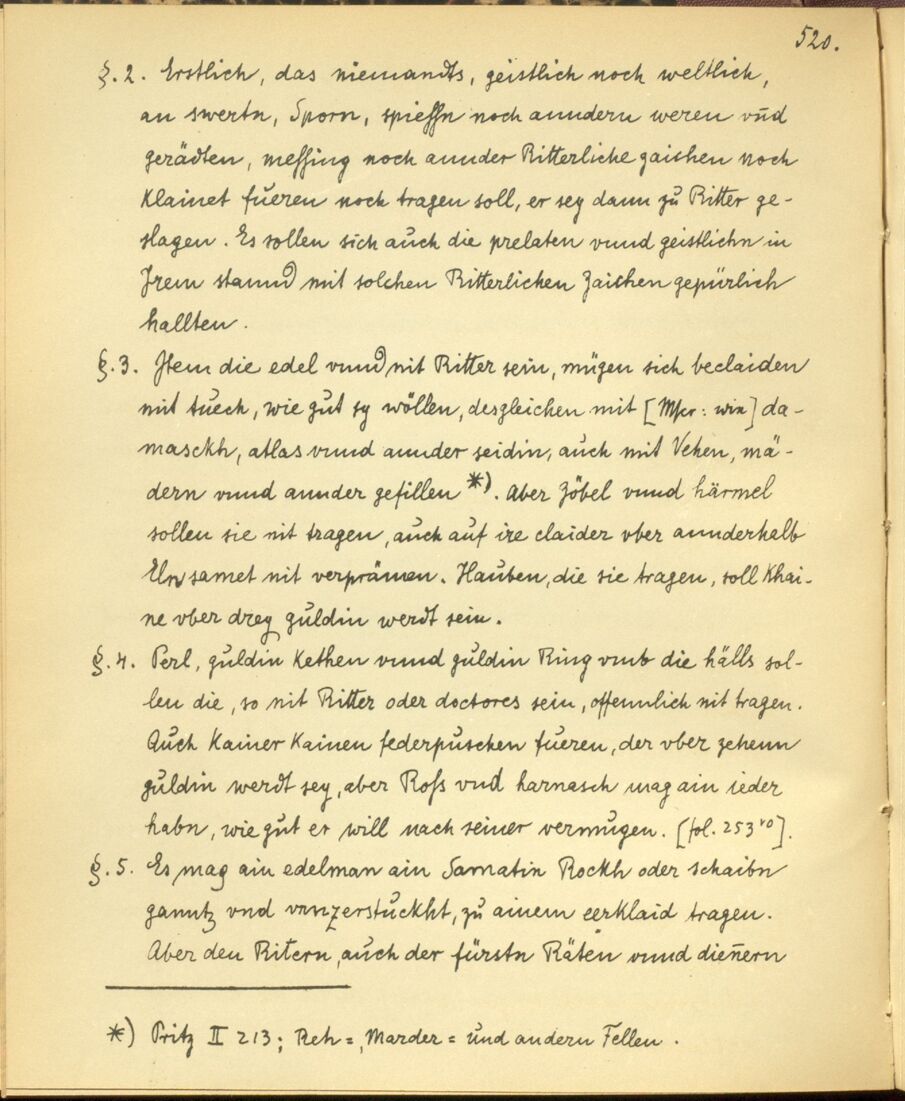 520.
§. 2. Erstlich, das niemandts, geistlich noch weltlich,
an swertn, Sporn, spiessn noch anndern weren vnd
gerädten, messing noch annder Ritterliche zaichen noch
Klainet fueren noch tragen soll, er sey dann zu Ritter ge-
slagen. Es sollen sich auch die prelaten vnnd geistlichn in
Jrem stannd mit solchen Ritterlichen Zaichen gepürlich
hallten.
§. 3. Jtem die edel vnnd nit Ritter sein, mügen sich beclaiden
mit tuech, wie gut sy wöllen, desgleichen mit [Mscr: win] da-
masckh, atlas vnnd annder seidin, auch mit Vehen, mä-
dern vnnd annder gefillen *). Aber Zöbel vnnd härmel
sollen sie nit tragen, auch auf ire claider vber annderhalb
Eln samet nit verprämen. Hauben, die sie tragen, soll Khai-
ne vber drey guldin werdt sein.
§. 4. Perl, guldin Kethen vnnd guldin Ring vmb die hälls sol-
len die, so nit Ritter oder doctores sein, offennlich nit tragen.
Auch Kainer Kainen federpuschen fueren, der vber zehenn
guldin werdt sey, aber Ross vnd harnasch mag ain ieder
habn, wie gut er will nach seiner vermugen. [fol. 253 vo].
§. 5. Es mag ain edelman ain Samatin Rockh oder schaibn
ganntz vnd vnnzerstuckht, zu ainem eerklaid tragen.
Aber den Ritern, auch der fürstn Räten vnnd dieñern
*) Pritz II 213; Reh=, Marder= und andern Fellen.